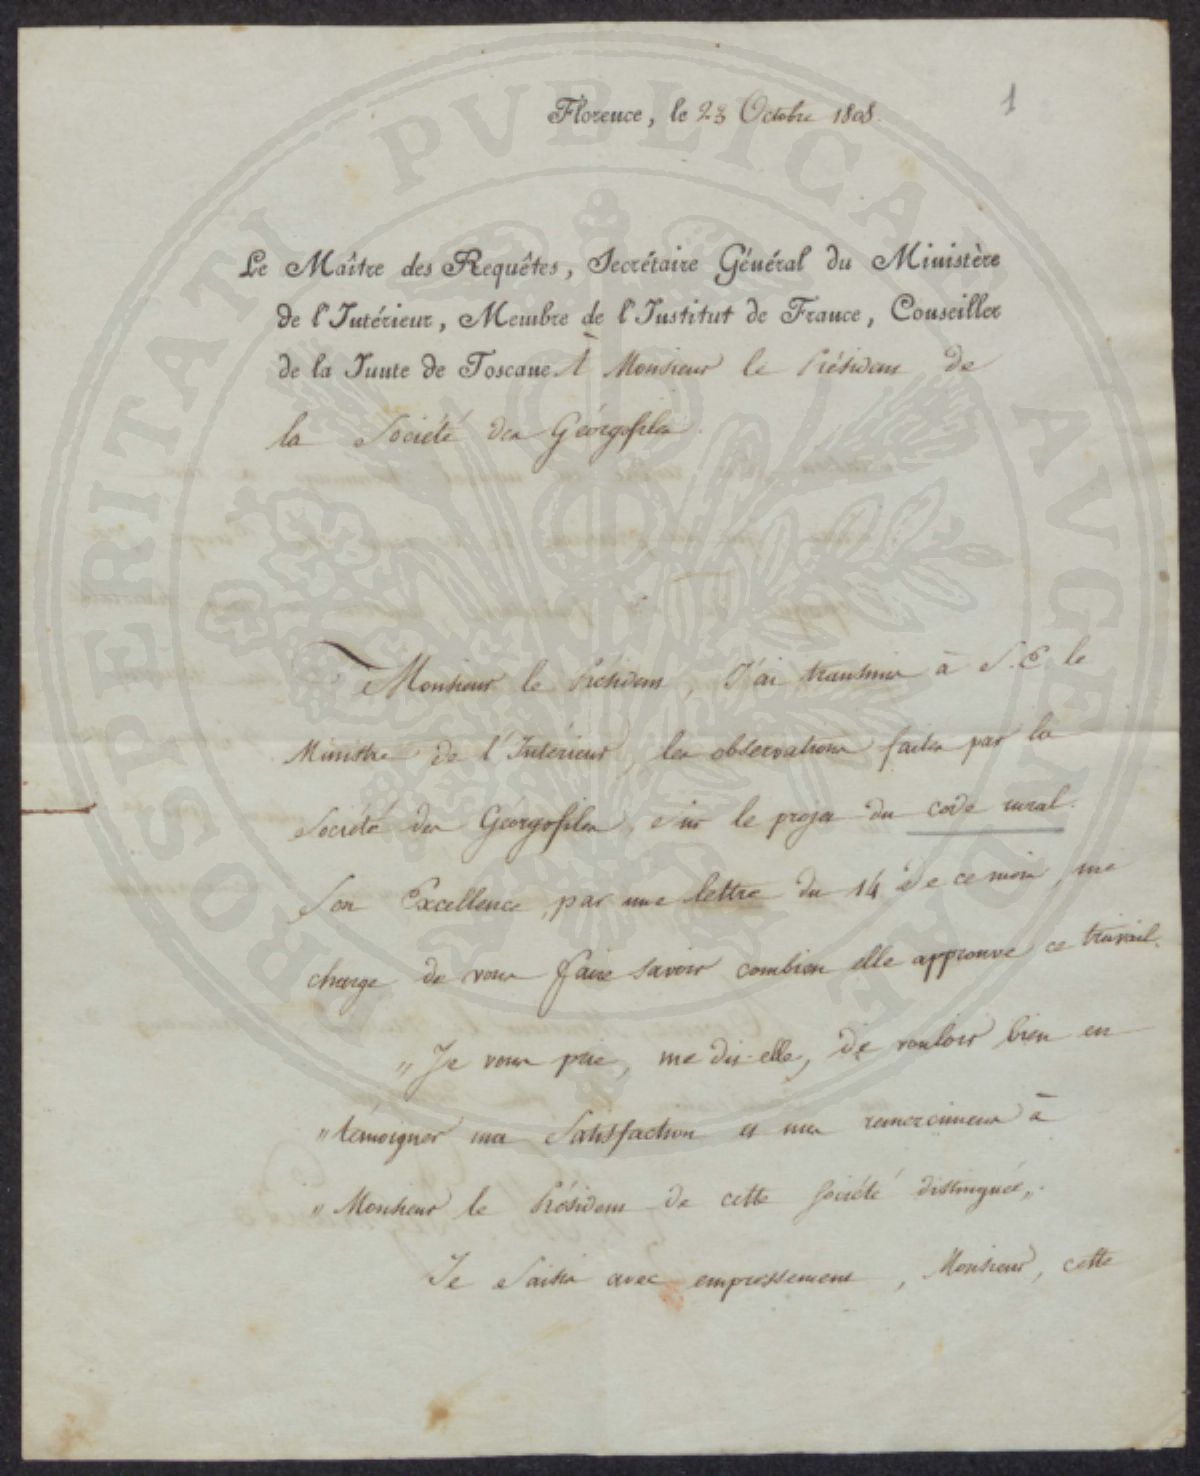 PROSPERITATI PVBLICAE AVGENDAE
Florence, le 23 Octobre 1808.
1
Le Maître des Requêtes, Secrétaire Général du Ministère
de l'Intérieur, Membre de l'Institut de France, Conseiller
de la Junte de Toscane A Monsieur le Président de
la Société des Géorgofiles.
Monsieur le Président, J'ai transmis à S. E. le
Ministre de l'Intérieur, les observations faites par la
Société des Géorgofiles, sur le projet du code rural.
Son Excellence, par une lettre du 14 de ce mois, me
charge de vous faire savoir combien elle approuve ce travail.
„ Je vous prie, me dit-elle, de vouloir bien en
„ témoigner ma satisfaction et mes remerciments à
„ Monsieur le Président de cette société distinguée „.
Je saisis avec empressement, Monsieur, cette